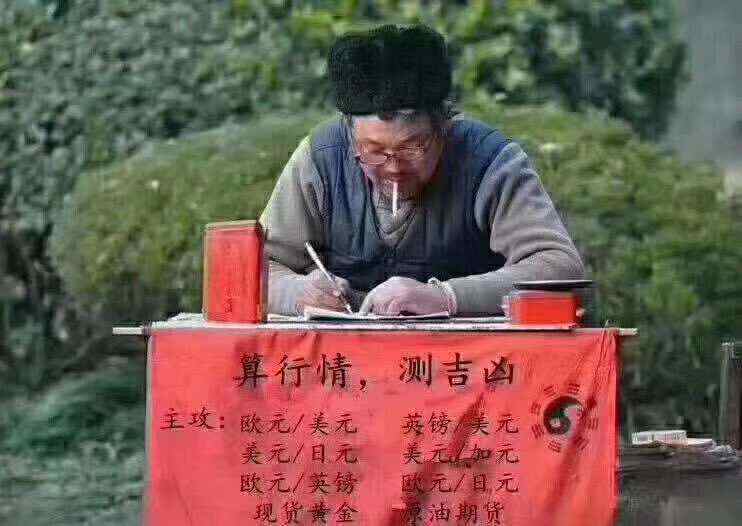 算行情，测吉凶
主攻：欧元/美元 英镑/美元
美元/日元 美元/加元
欧元/英镑 欧元/日元
现货黄金 原油期货